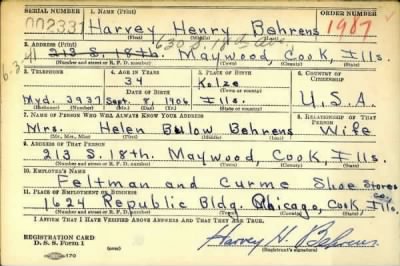 SERIAL NUMBER 1. NAME (Print) ORDER NUMBER
002331 Harvey Henry Behrens 1987
(First) (Middle) (Last)
630 S. 18th Av.
2. ADDRESS (Print)
213 S. 18th. Maywood, Cook, Ills.
(Number and street or R. F. D. number) (Town) (County) (State)
3. TELEPHONE 4. AGE IN YEARS 5. PLACE OF BIRTH 6. COUNTRY OF CITIZENSHIP
34
DATE OF BIRTH
Myd. 3937 Sept. 8, 1906 Ills. U.S.A.
(Exchange) (No.) (Mo.) (Day) (Yr.) (State or country)
7. NAME OF PERSON WHO WILL ALWAYS KNOW YOUR ADDRESS 8. RELATIONSHIP OF THAT PERSON
Mrs. Helen Bulow Behrens Wife
(Mr., Mrs., Miss) (First) (Middle) (Last)
9. ADDRESS OF THAT PERSON
213 S. 18th. Maywood, Cook, Ills.
(Number and street or R. F. D. number) (Town) (County) (State)
10. EMPLOYER'S NAME
Feltman and Curme Shoe Stores
11. PLACE OF EMPLOYMENT OR BUSINESS
1624 Republic Bldg. Chicago, Cook, Ills.
(Number and street or R. F. D. number) (Town) (County) (State)
I AFFIRM THAT I HAVE VERIFIED ABOVE ANSWERS AND THAT THEY ARE TRUE.
REGISTRATION CARD
D. S. S. Form 1
Harvey H. Behrens
(Registrant's signature)